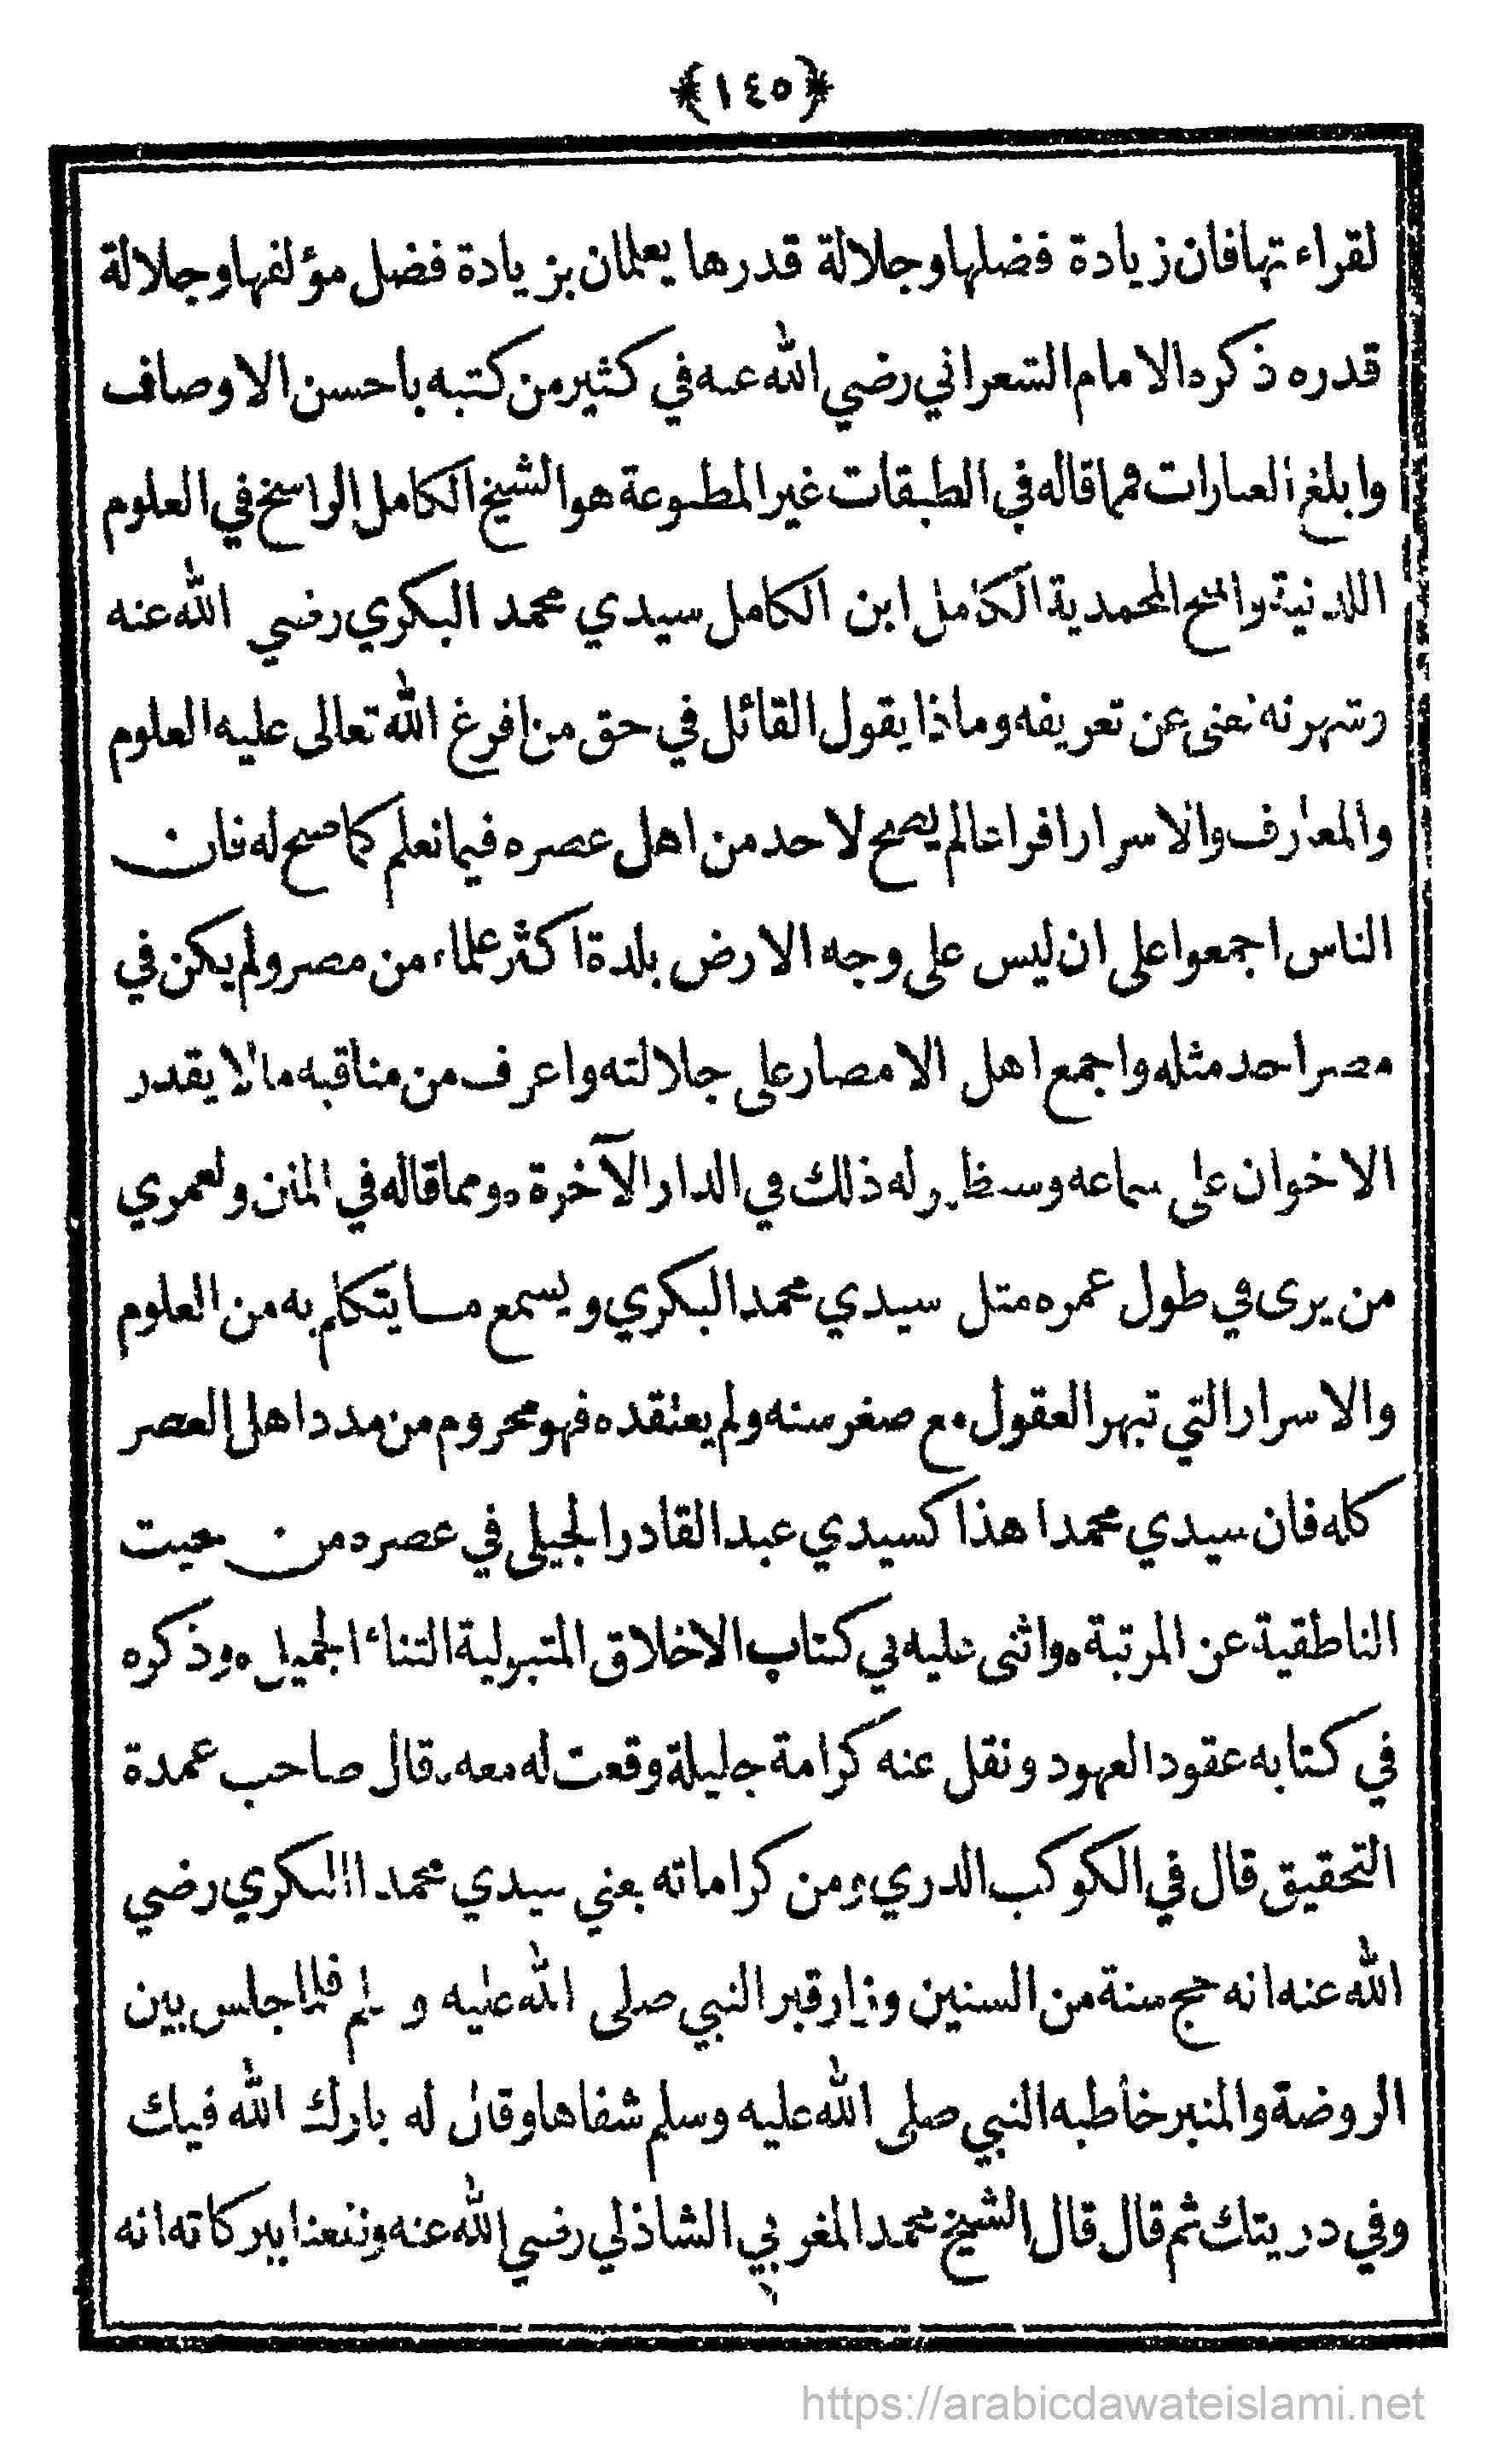 ﴿١٤٥﴾
لقراءتها فان زيادة فضلها وجلالة قدرها يعلمان بزيادة فضل مؤلفها وجلالة
قدره ذكره الامام الشعراني رضي الله عنه في كثير من كتبه باحسن الاوصاف
وابلغ العبارات فمما قاله في الطبقات غير المطبوعة هو الشيخ الكامل الراسخ في العلوم
اللدنية والمنح المحمدية الكامل ابن الكامل سيدي محمد البكري رضي الله عنه
وشهرته تغني عن تعريفه وماذا يقول القائل في حق من افرغ الله تعالى عليه العلوم
والمعارف والاسرار افراغا لم يصح لاحد من اهل عصره فيما نعلم كما صح له فان
الناس اجمعوا على ان ليس على وجه الارض بلدة اكثر علماء من مصر ولم يكن في
مصر احد مثله واجمع اهل الامصار على جلالته واعرف من مناقبه ما لا يقدر
الاخوان على سماعه وسيظهر له ذلك في الدار الآخرة * ومما قاله في المنن ولعمري
من يرى في طول عمره مثل سيدي محمد البكري ويسمع ما يتكلم به من العلوم
والاسرار التي تبهر العقول مع صغر سنه ولم يعتقده فهو محروم من مدد اهل العصر
كله فان سيدي محمدا هذا كسيدي عبد القادر الجيلي في عصره من حيث
الناطقية عن المرتبة * واثنى عليه في كتاب الاخلاق المتبولية الثناء الجميل * وذكره
في كتابه عقود العهود ونقل عنه كرامة جليلة وقعت له معه. قال صاحب عمدة
التحقيق قال في الكوكب الدري ومن كراماته يعني سيدي محمد البكري رضي
الله عنه انه حج سنة من السنين وزار قبر النبي صلى الله عليه و لم فلما جلس بين
الروضة والمنبر خاطبه النبي صلى الله عليه وسلم شفاها وقال له بارك الله فيك
وفي دريتك ثم قال قال الشيخ محمد المغربي الشاذلي رضي الله عنه ونفعنا ببركاته انه
https://arabicdawateislami.net